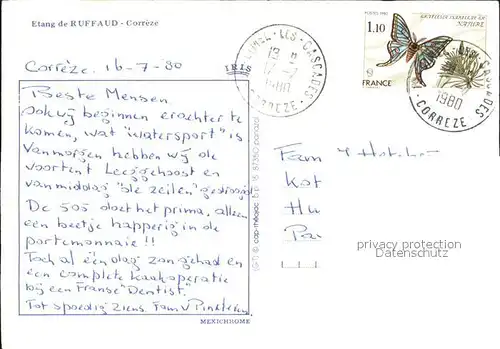 Etang de RUFFAUD - Corrèze
Corrèze. 16-7-80
IRIS
Beste Mensen,
Ook wij beginnen erachter te
komen, wat "watersport" is
Vanmorgen hebben wij de
voortent leeggehoosd en
vanmiddag "de zeilen" gedroogd
De 505 doet het prima, alleen
een beetje happerig in de
portemonnaie !!
Toch al één dag zon gehad en
een complete kaakoperatie
bij een Franse "Dentist".
Tot spoedig ziens. Fam V Pinkteren.
MEXICHROME
cap-théojac
87350 panazol
LES CASCADES
CORREZE
POSTES 1980
NATURE
1,10
FRANCE
LES CASCADES
1980
CORREZE
Fam
Kot
Hu
Pa
privacy protection
Datenschutz